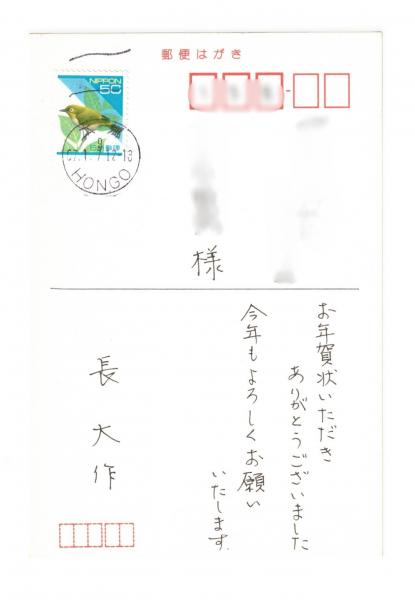 郵便はがき
NIPPON
50
日本郵便
HONGO
様
お年賀状いただき
ありがとうございました
今年もよろしくお願い
いたします。
長 大作